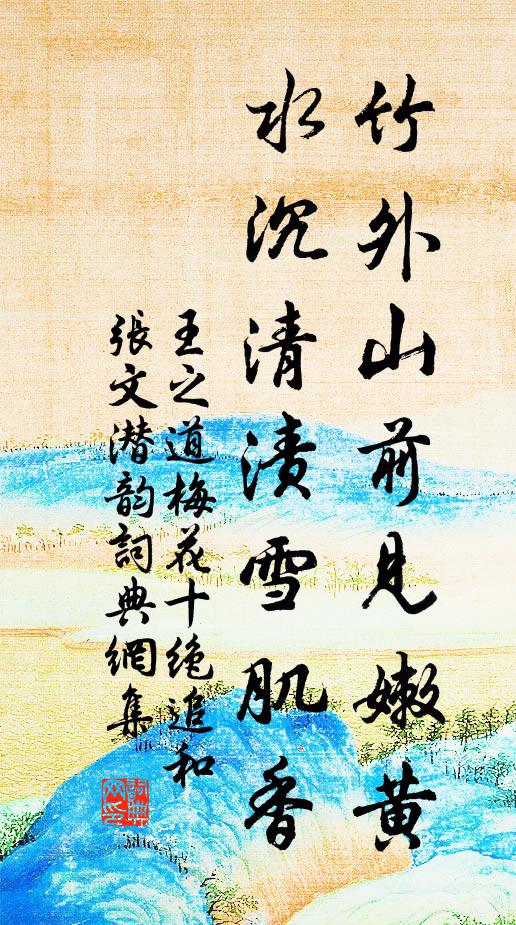 竹外山前見嫩黄
水沉清漬雪肌香
王之道梅花十絶追和
張文潜韵詞典網集